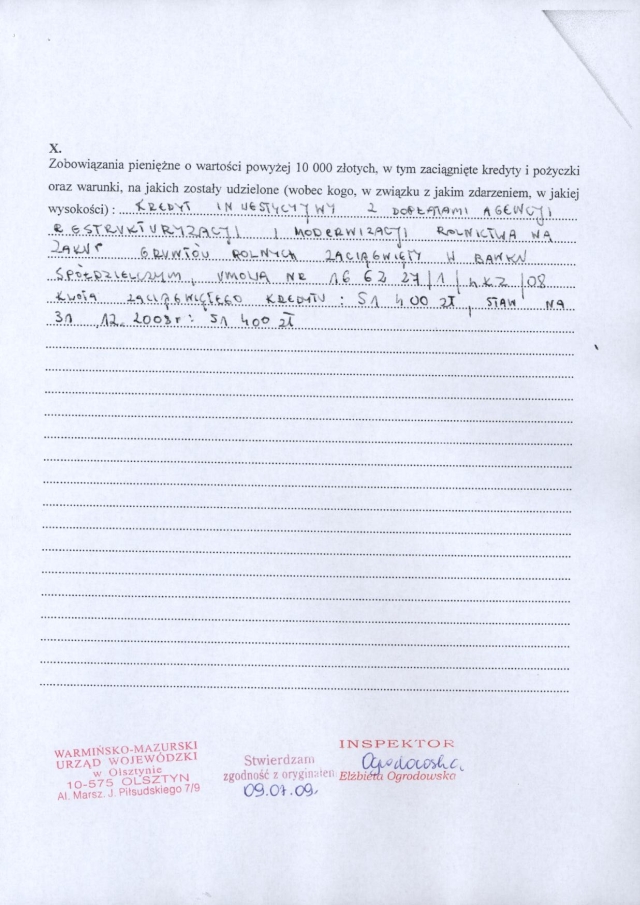 X.
Zobowiązania pieniężne o wartości powyżej 10 000 złotych, w tym zaciągnięte kredyty i pożyczki
oraz warunki, na jakich zostały udzielone (wobec kogo, w związku z jakim zdarzeniem, w jakiej
wysokości) : KREDYT INWESTYCYJNY Z DOPŁATAMI AGENCJI
RESTRUKTURYZACJI I MODERNIZACJI ROLNICTWA NA
ZAKUP GRUNTÓW ROLNYCH ZACIĄGNIĘTY W BANKU
SPÓŁDZIELCZYM, UMOWA NR 16 62 27/1/ /08
KWOTA ZACIĄGNIĘTEGO KREDYTU : 51 400 zł, STAN NA
31.12.2008r : 51 400 zł
WARMIŃSKO-MAZURSKI
URZĄD WOJEWÓDZKI
w Olsztynie
10-575 OLSZTYN
Al. Marsz. J. Piłsudskiego 7/9
Stwierdzam
zgodność z oryginałem
09.07.09.
INSPEKTOR
Ogrodowska
Elżbieta Ogrodowska